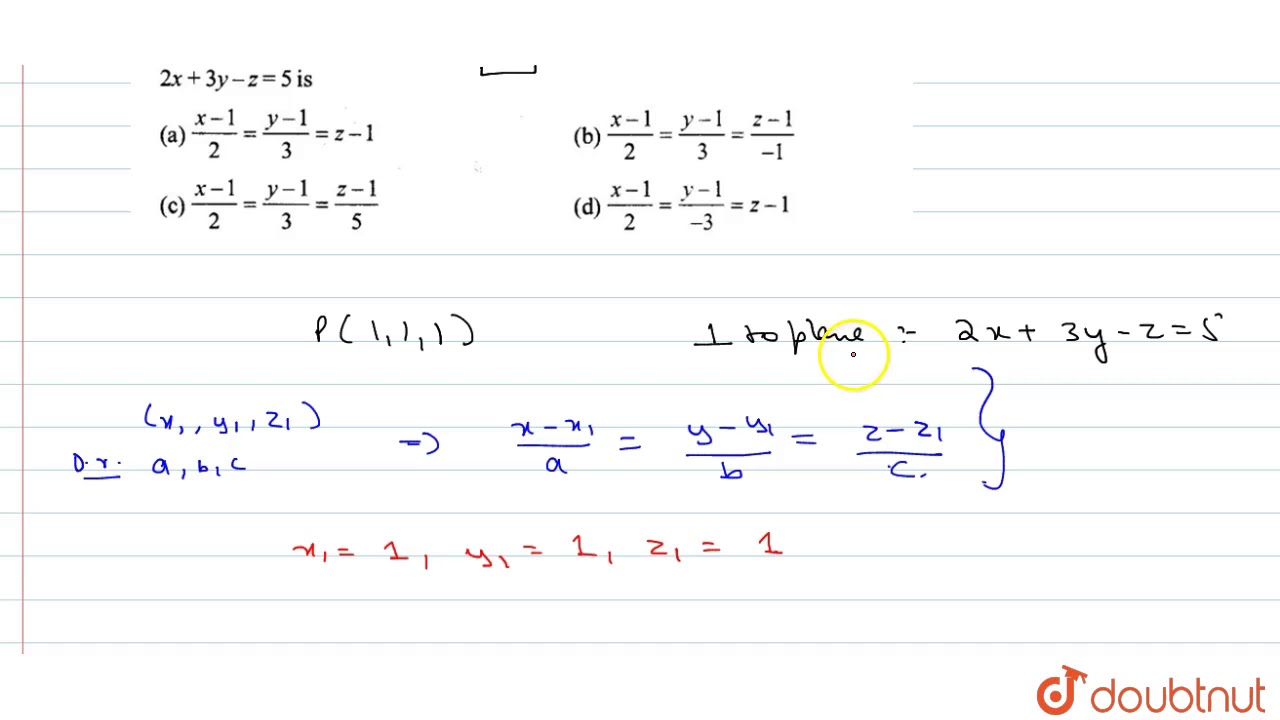 2x + 3y – z = 5 is
(a) x–1/2 = y–1/3 = z–1 (b) x–1/2 = y–1/3 = z–1/–1
(c) x–1/2 = y–1/3 = z–1/5 (d) x–1/2 = y–1/–3 = z–1
P(1,1,1) ⊥ to plane :- 2x + 3y - z = 5
(x₁, y₁, z₁) ⇒ x-x₁/a = y-y₁/b = z-z₁/c. }
D.r. a, b, c
x₁ = 1, y₁ = 1, z₁ = 1
doubtnut